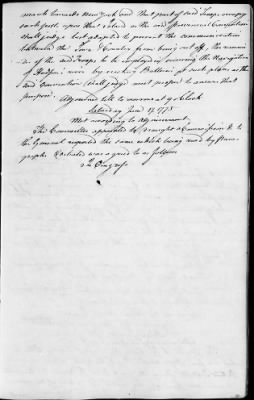 march towards New York and that part of said Troops occupy
such posts upon that Island as the said Provincial Convention
shall judge best adapted to prevent the communication
between the Town & Country from being cut off, the remain
der of the said Troops to be employed in securing the Navigation
of Hudson's river by erecting Batteries at such places as the
said Convention shall judge most proper to answer that
purpose. Adjourned till to morrow at 9 oClock
Saturday June 17. 1775
Met according to Adjournment,
The Committee appointed to draught a Commission &c to
the General reported the same which being read by Para-
graphs & debated was agreed to as follows
In Congress